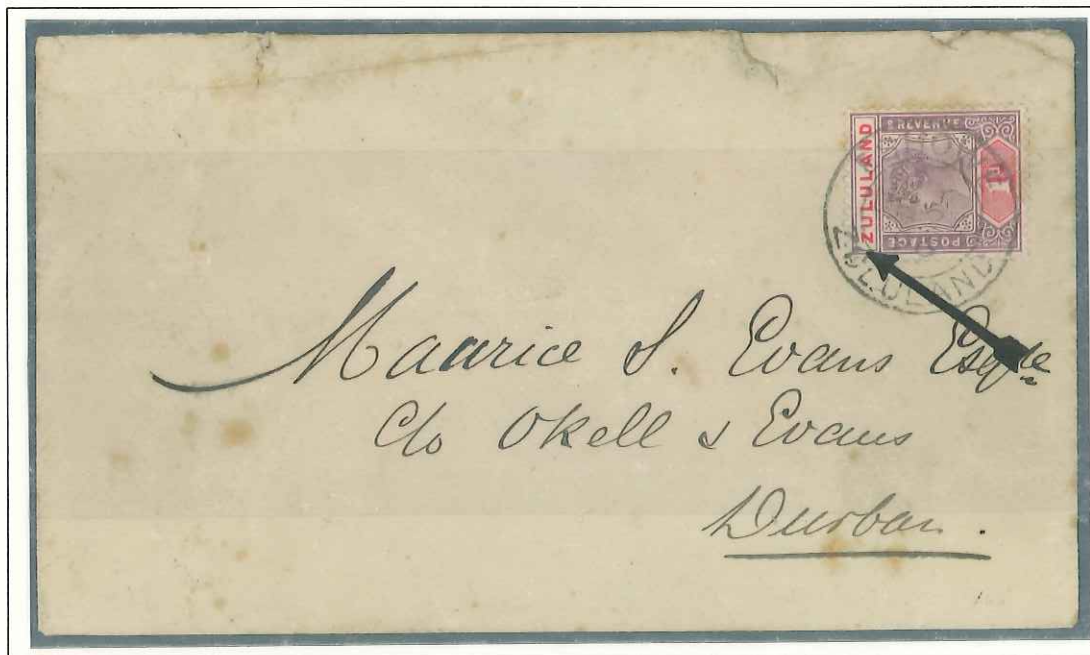 & REVENUE
ZULULAND
POSTAGE
1D
ZULULAND
Maurice S. Evans Esqre
C/o Okell & Evans
Durban.